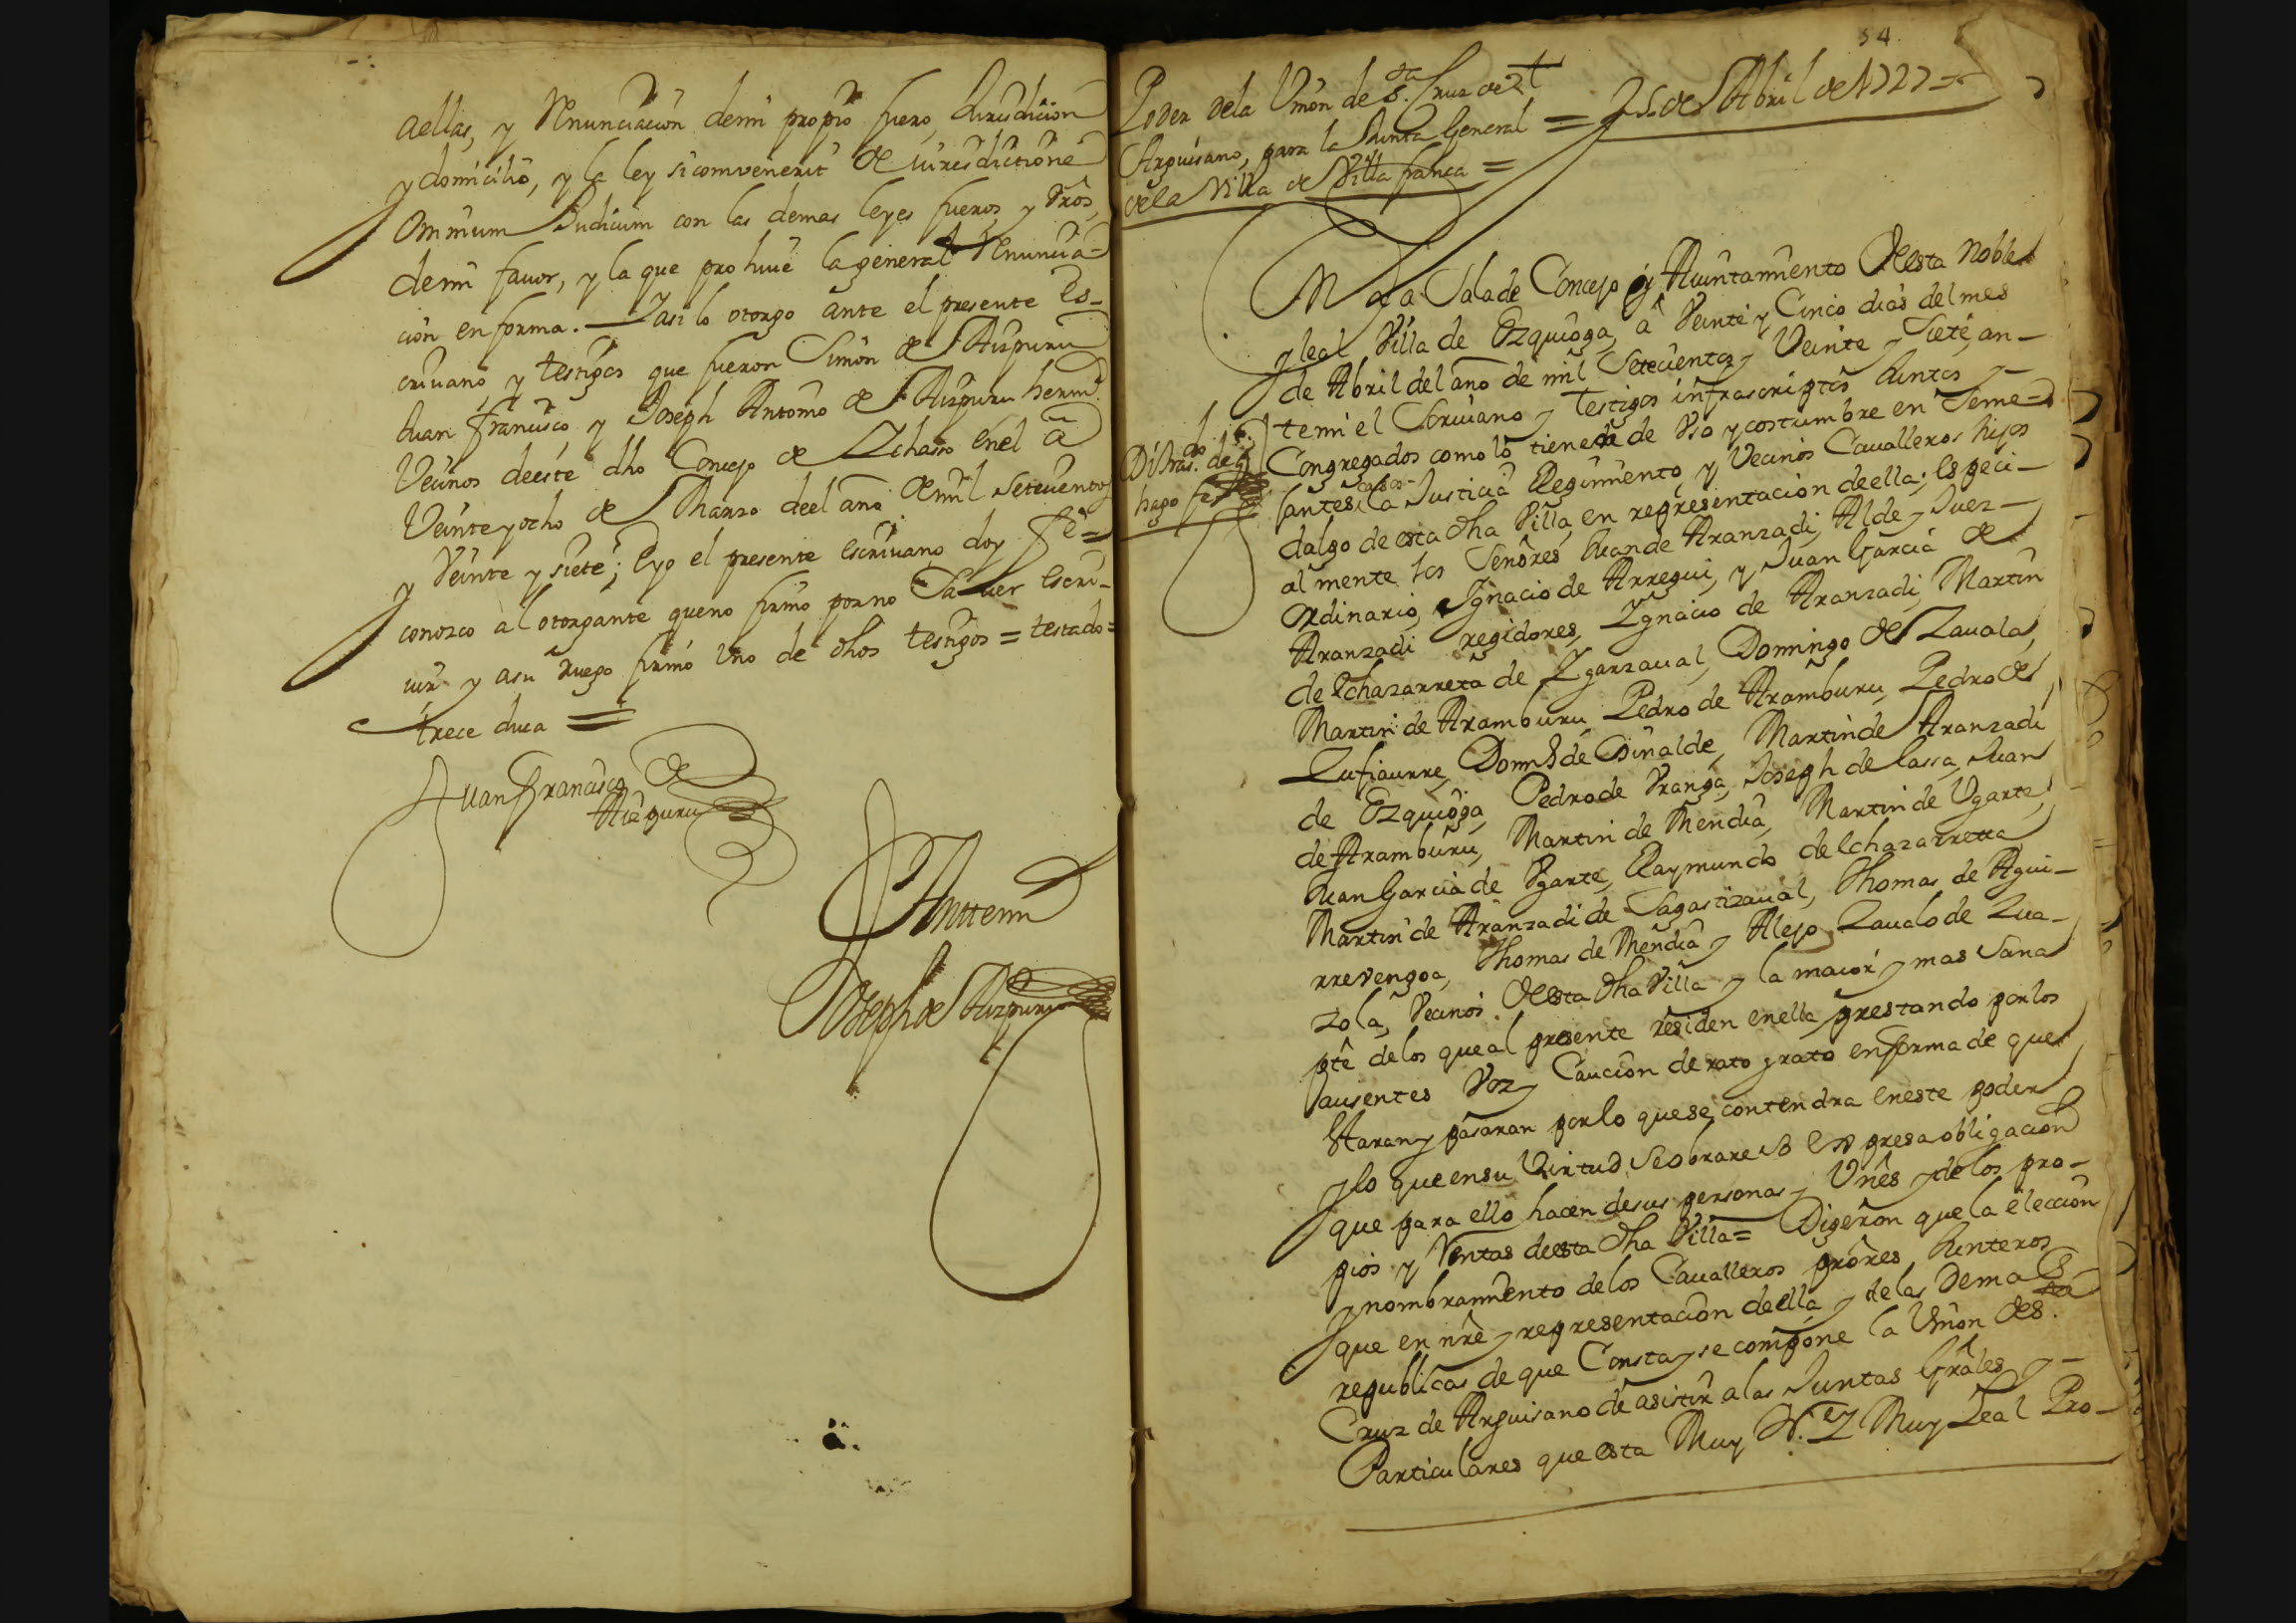 aellas, y Renunciacion demi propio fuero, Jurisdicion
y domicilio, y la ley si combenerit de iurisdictione
Omnium Judicum con las demas leyes fueros y dros,
demi favor, y la que prohive la general Renuncia-
cion en forma. Y asi lo otorgo ante el presente Es-
crivano, y testigos que fueron Simon de Aizpuru
Juan francisco, y Joseph Antonio de Aizpuru herm.s
Vecinos deeste dho Concejo de Ychasso enel a
Veinte y ocho de Marzo deel año demil setecientos
y Veinte y siete; E yo el presente escrivano doy fee=
conozco al otorgante queno firmo por no saver escri-
vir y asu Ruego firmó Uno de dhos testigos = testado=
trece duca =
Juan Francisco de
Aizpuru
Anttemi
Joseph de Aizpuru
54
Poder dela Union de S.ta Cruz de
Arguisano, para la Junta General = 25 de Abril de 1727=
dela Villa de Villa franca =
En la Sala de Concejo y Aiuntamiento Deesta Noble
y leal Villa de Ezquioga, â Veinte y Cinco dias del mes
de Abril del año de mil Setecientos y Veinte y Siete, an-
temi el Scrivano y Testigos infrascriptos Juntos y
Congregados como lo tienen de Uso y costumbre en Seme-
jantes casos la Justicia Regimiento, y Vecinos Cavalleros hijos
dalgo de esta dha Villa, en representacion deella; Especi-
almente los Señores Juan de Aranzadi, Alde y Juez
Ordinario, Ignacio de Arregui, y Juan Garcia de
Aranzadi regidores, Ygnacio de Aranzadi, Martin
de Echazarreta de Ygarzaval, Domingo de Zavala,
Martin de Aramburu, Pedro de Aramburu, Pedro de
Zufiaurre, Domingo de Osinalde, Martin de Aranzadi
de Ezquioga, Pedro de Uranga, Joseph de lassa, Juan
de Aramburu, Martin de Mendia, Martin de Ugarte,
Juan Garcia de Ugarte, Raymundo de Echazarreta
Martin de Aranzadi de Sagastizaval, Thomas de Agui-
rrevengoa, Thomas de Mendia y Alejo Zavalo de Zua-
zola, Vecinos Deesta dha Villa y la maior y mas Sana
pte delos queal presente residen enella prestando porlos
ausentes Voz y Caucion de rato grato enforma de que
Staran y pasaran porlo que se contendra eneste poder
y lo que ensu Virtud Seobrare so expresa obligacion
que para ello hacen desus personas y Vnes y delos pro-
pios y Rentas deesta dha Villa= Digeron que la eleccion
y nombramiento delos Cavalleros prôres Junteros
que en nrê y representacion deella, y delas demas
republicas de que Consta y se compone la Union de S.ta
Cruz de Arguisano de asistir alas Juntas Grâles y
Particulares que esta Muy N.e Y Muy Leal Pro-